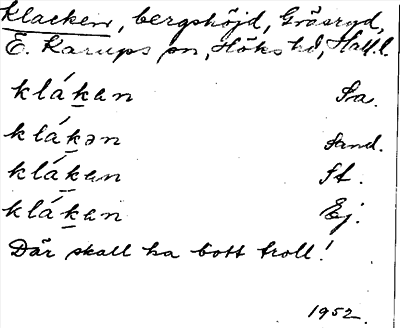 Klacken, bergshöjd, Gräsryd,
E. Karups sn, Höks hd, Hall. l.
klákan Sa.
klákən Sand.
klákan St.
klákan Ej.
Där skall ha bott troll!
1952.